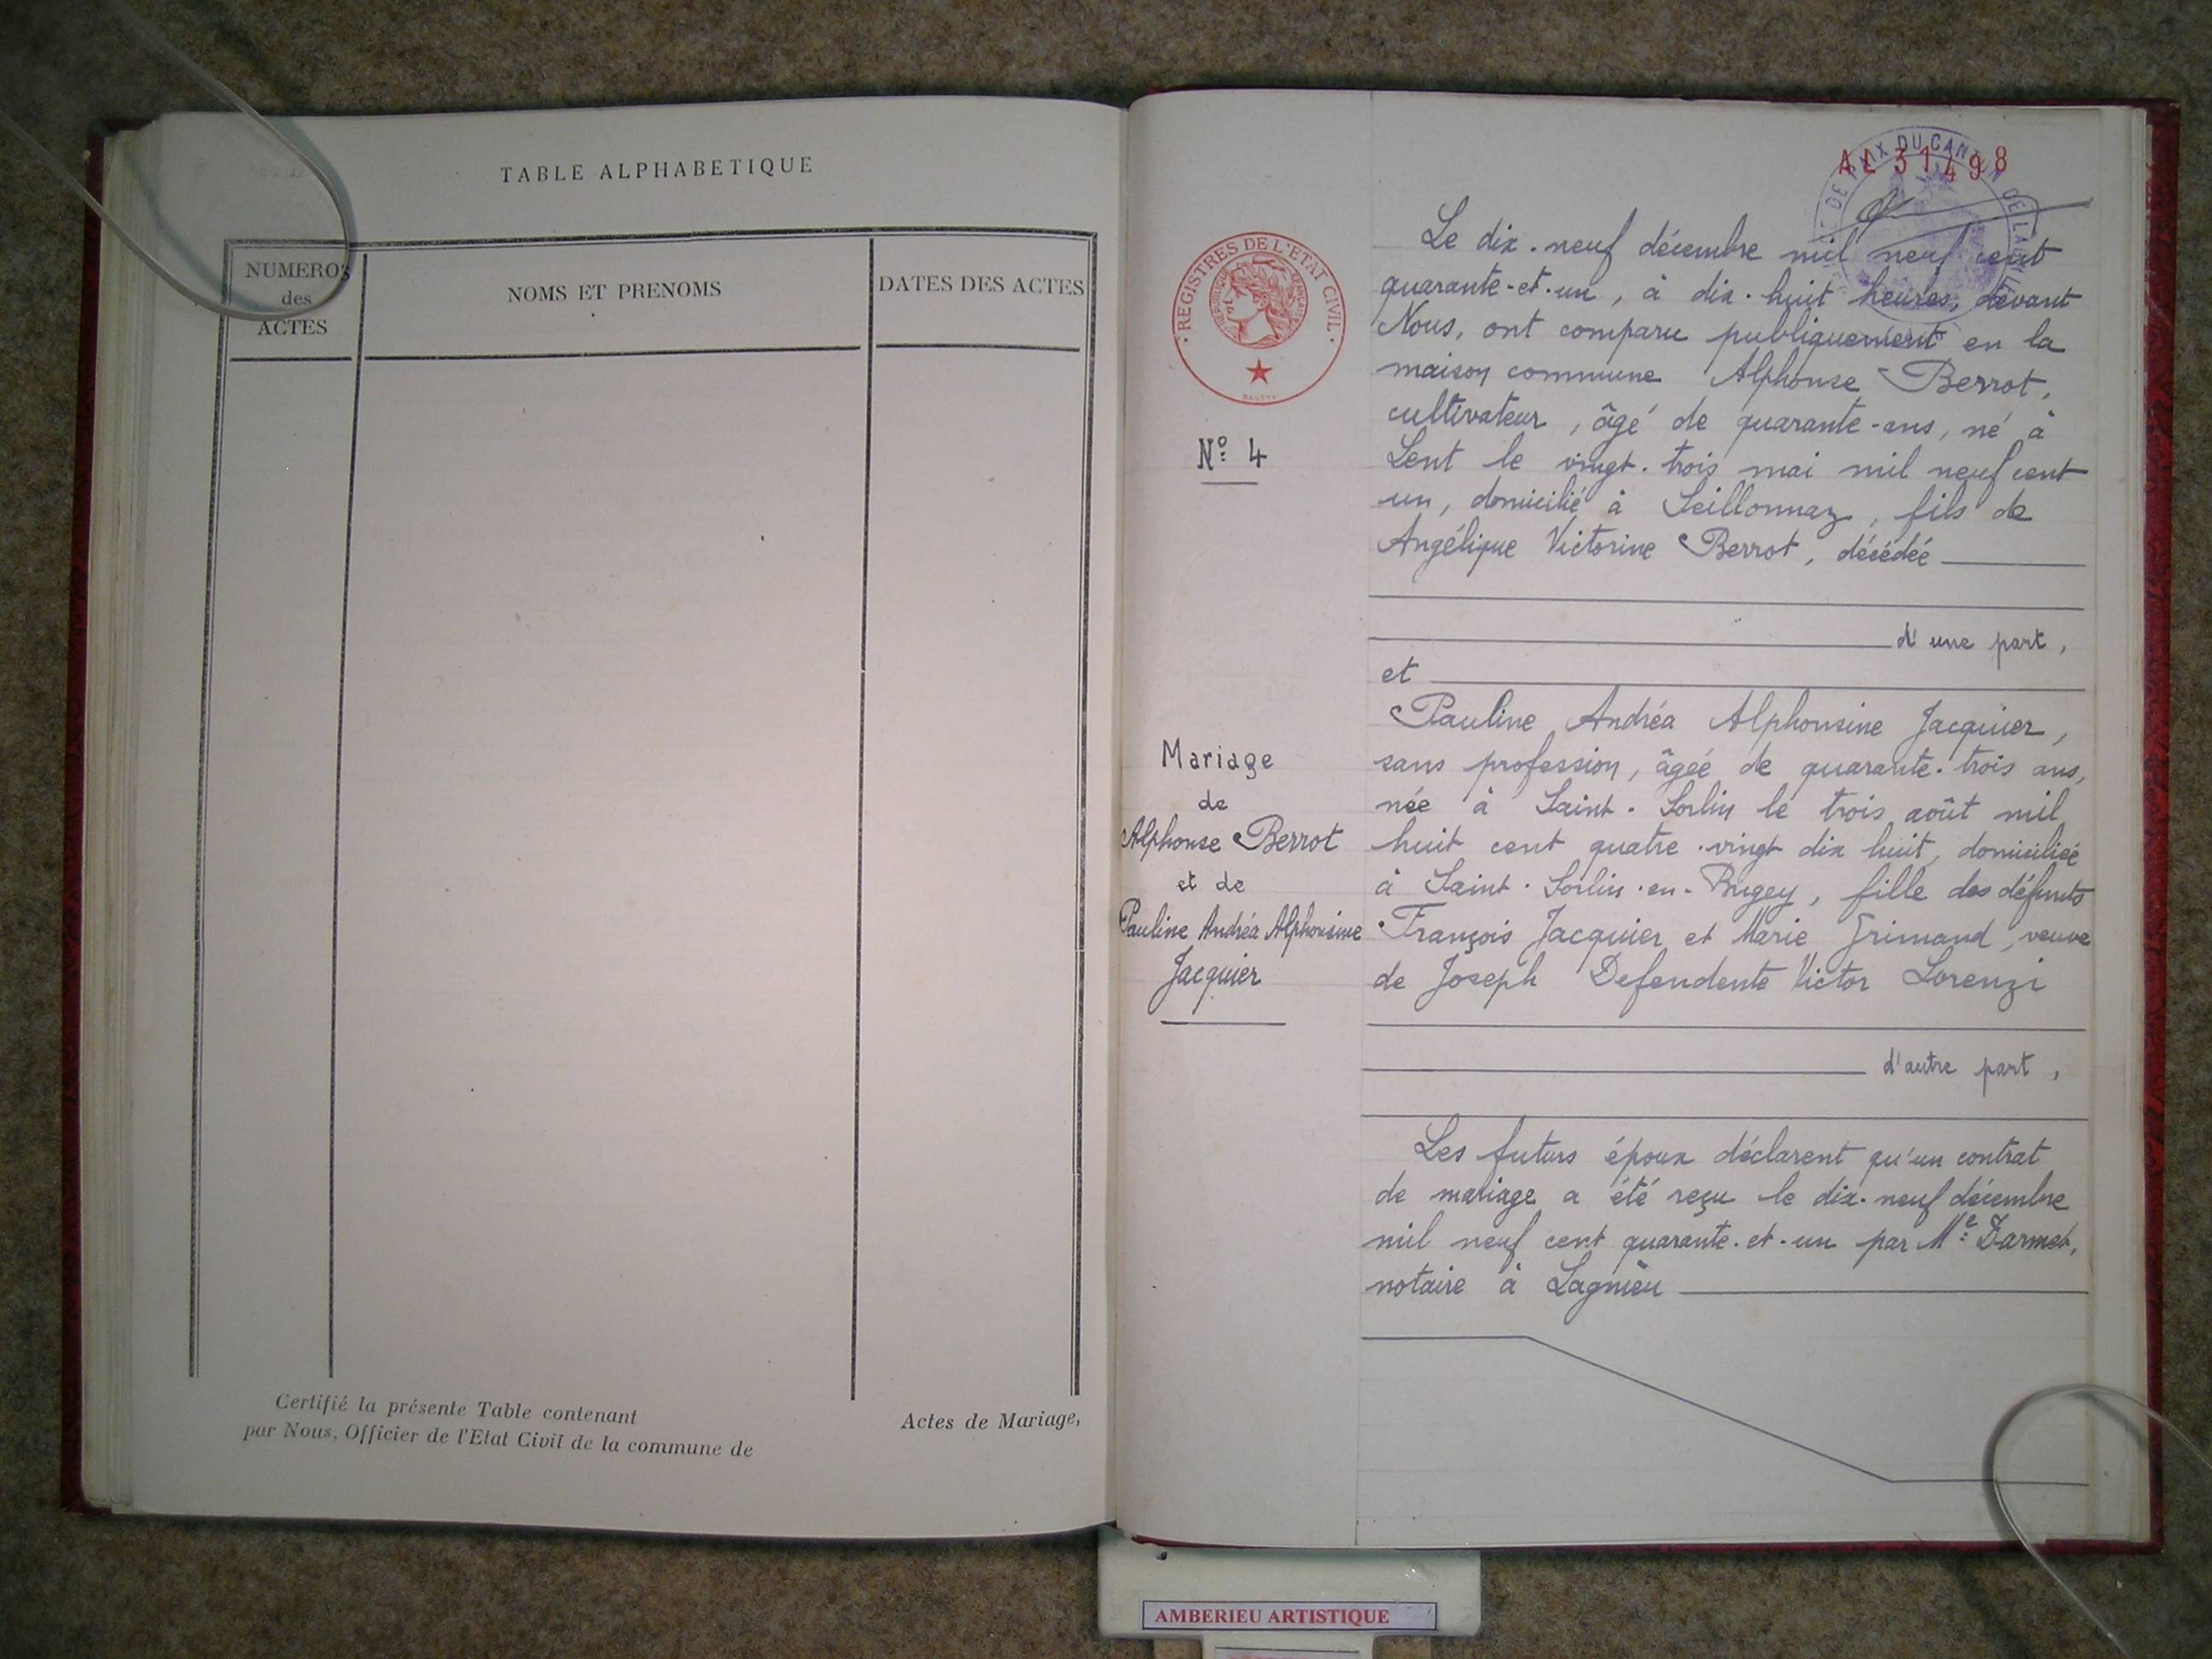 TABLE ALPHABETIQUE
NUMEROS
des
ACTES
NOMS ET PRENOMS
DATES DES ACTES
Certifié la présente Table contenant
Actes de Mariage,
par Nous, Officier de l'Etat Civil de la commune de
AL 31498
REGISTRES DE L'ETAT CIVIL
Nº 4
Mariage
de
Alphonse Berrot
et de
Pauline Andréa Alphonsine
Jacquier
Le dix-neuf décembre mil neuf cent
quarante-et-un, à dix-huit heures, devant
Nous, ont comparu publiquement en la
maison commune Alphonse Berrot,
cultivateur, âgé de quarante-ans, né à
Lent le vingt-trois mai mil neuf cent
un, domicilié à Seillonnaz, fils de
Angélique Victorine Berrot, décédée
d'une part,
et
Pauline Andréa Alphonsine Jacquier,
sans profession, âgée de quarante-trois ans,
née à Saint-Sorlin le trois août mil
huit cent quatre-vingt dix huit, domiciliée
à Saint-Sorlin-en-Bugey, fille des défunts
François Jacquier et Marie Grimand, veuve
de Joseph Defendente Victor Lorenzi
d'autre part,
Les futurs époux déclarent qu'un contrat
de mariage a été reçu le dix-neuf décembre
mil neuf cent quarante-et-un par Me Darmet,
notaire à Lagnieu
AMBERIEU ARTISTIQUE